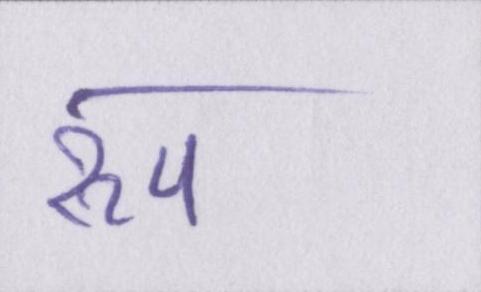 रूप